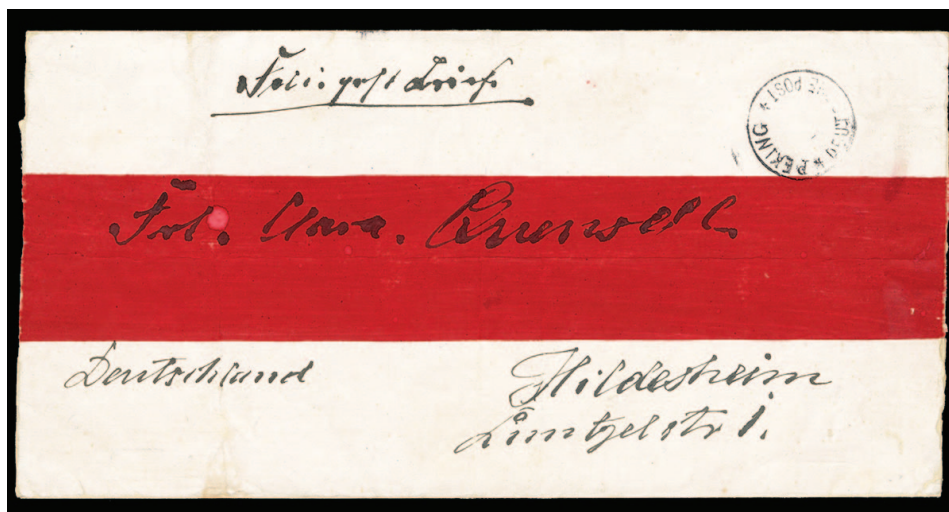 Feldpostbrief
PEKING * DEUTSCHE POST *
Frl. Clara.
Deutschland
Hildesheim
Luntzelstr 1.